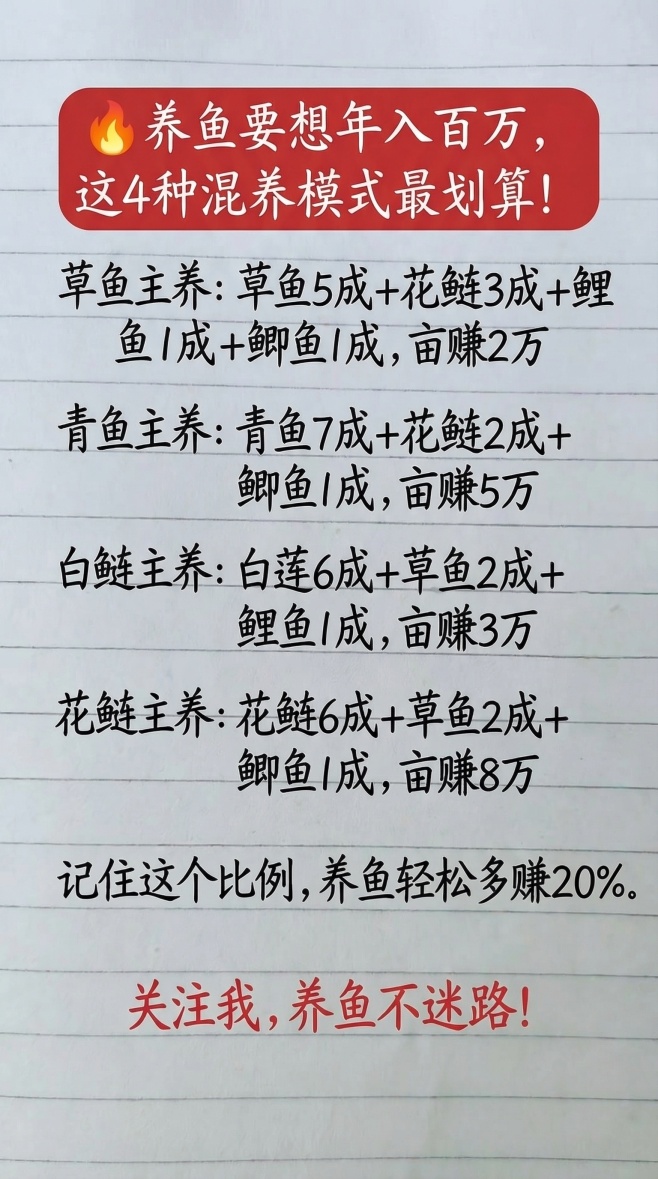 🔥养鱼要想年入百万，
这4种混养模式最划算！
草鱼主养：草鱼5成+花鲢3成+鲤
鱼1成+鲫鱼1成，亩赚2万
青鱼主养：青鱼7成+花鲢2成+
鲫鱼1成，亩赚5万
白鲢主养：白莲6成+草鱼2成+
鲤鱼1成，亩赚3万
花鲢主养：花鲢6成+草鱼2成+
鲫鱼1成，亩赚8万
记住这个比例，养鱼轻松多赚20%。
关注我，养鱼不迷路！